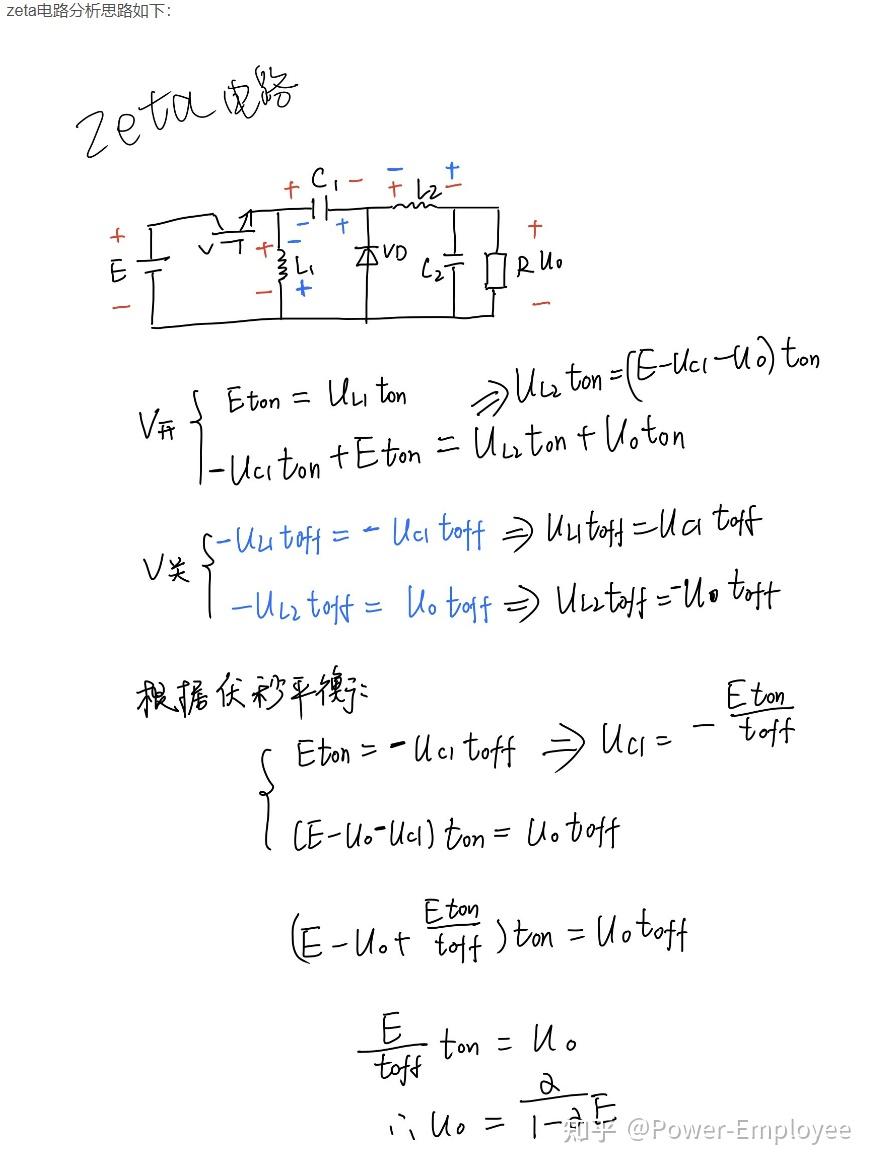 zeta电路分析思路如下:
zeta电路
+ C1 - - + L2 - +
+ E - V T + - L1 - + - + VD C2 R + U0 -
V开 { Eton = UL1 ton ⇒ UL2 ton = (E-UC1-U0) ton
-UC1 ton + E ton = UL2 ton + U0 ton
V关 { -UL1 toff = - UC1 toff ⇒ UL1 toff = UC1 toff
-UL2 toff = U0 toff ⇒ UL2 toff = -U0 toff
根据伏秒平衡:
{ Eton = -UC1 toff ⇒ UC1 = - Eton/toff
(E-U0-UC1) ton = U0 toff
(E-U0+ Eton/toff) ton = U0 toff
E/toff ton = U0
∴ U0 = a/(1-a) E
知乎 @Power-Employee